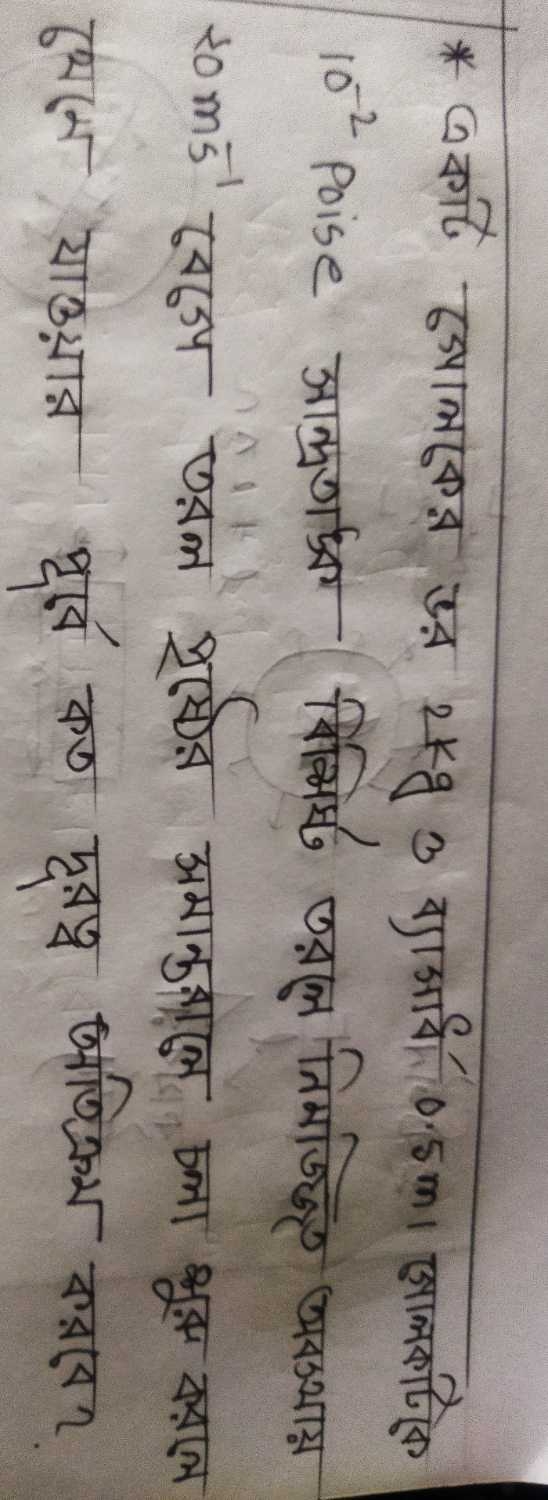 * একটি গোলকের ভর 2kg ও ব্যাসার্ধ 0.5m। গোলকটিকে
10⁻² Poise সান্দ্রতাঙ্ক বিশিষ্ট তরলে নিমজ্জিত অবস্থায়
20 ms⁻¹ বেগে তরল পৃষ্ঠের সমান্তরালে চলা শুরু করলে
থেমে যাওয়ার পূর্বে কত দূরত্ব অতিক্রম করবে?